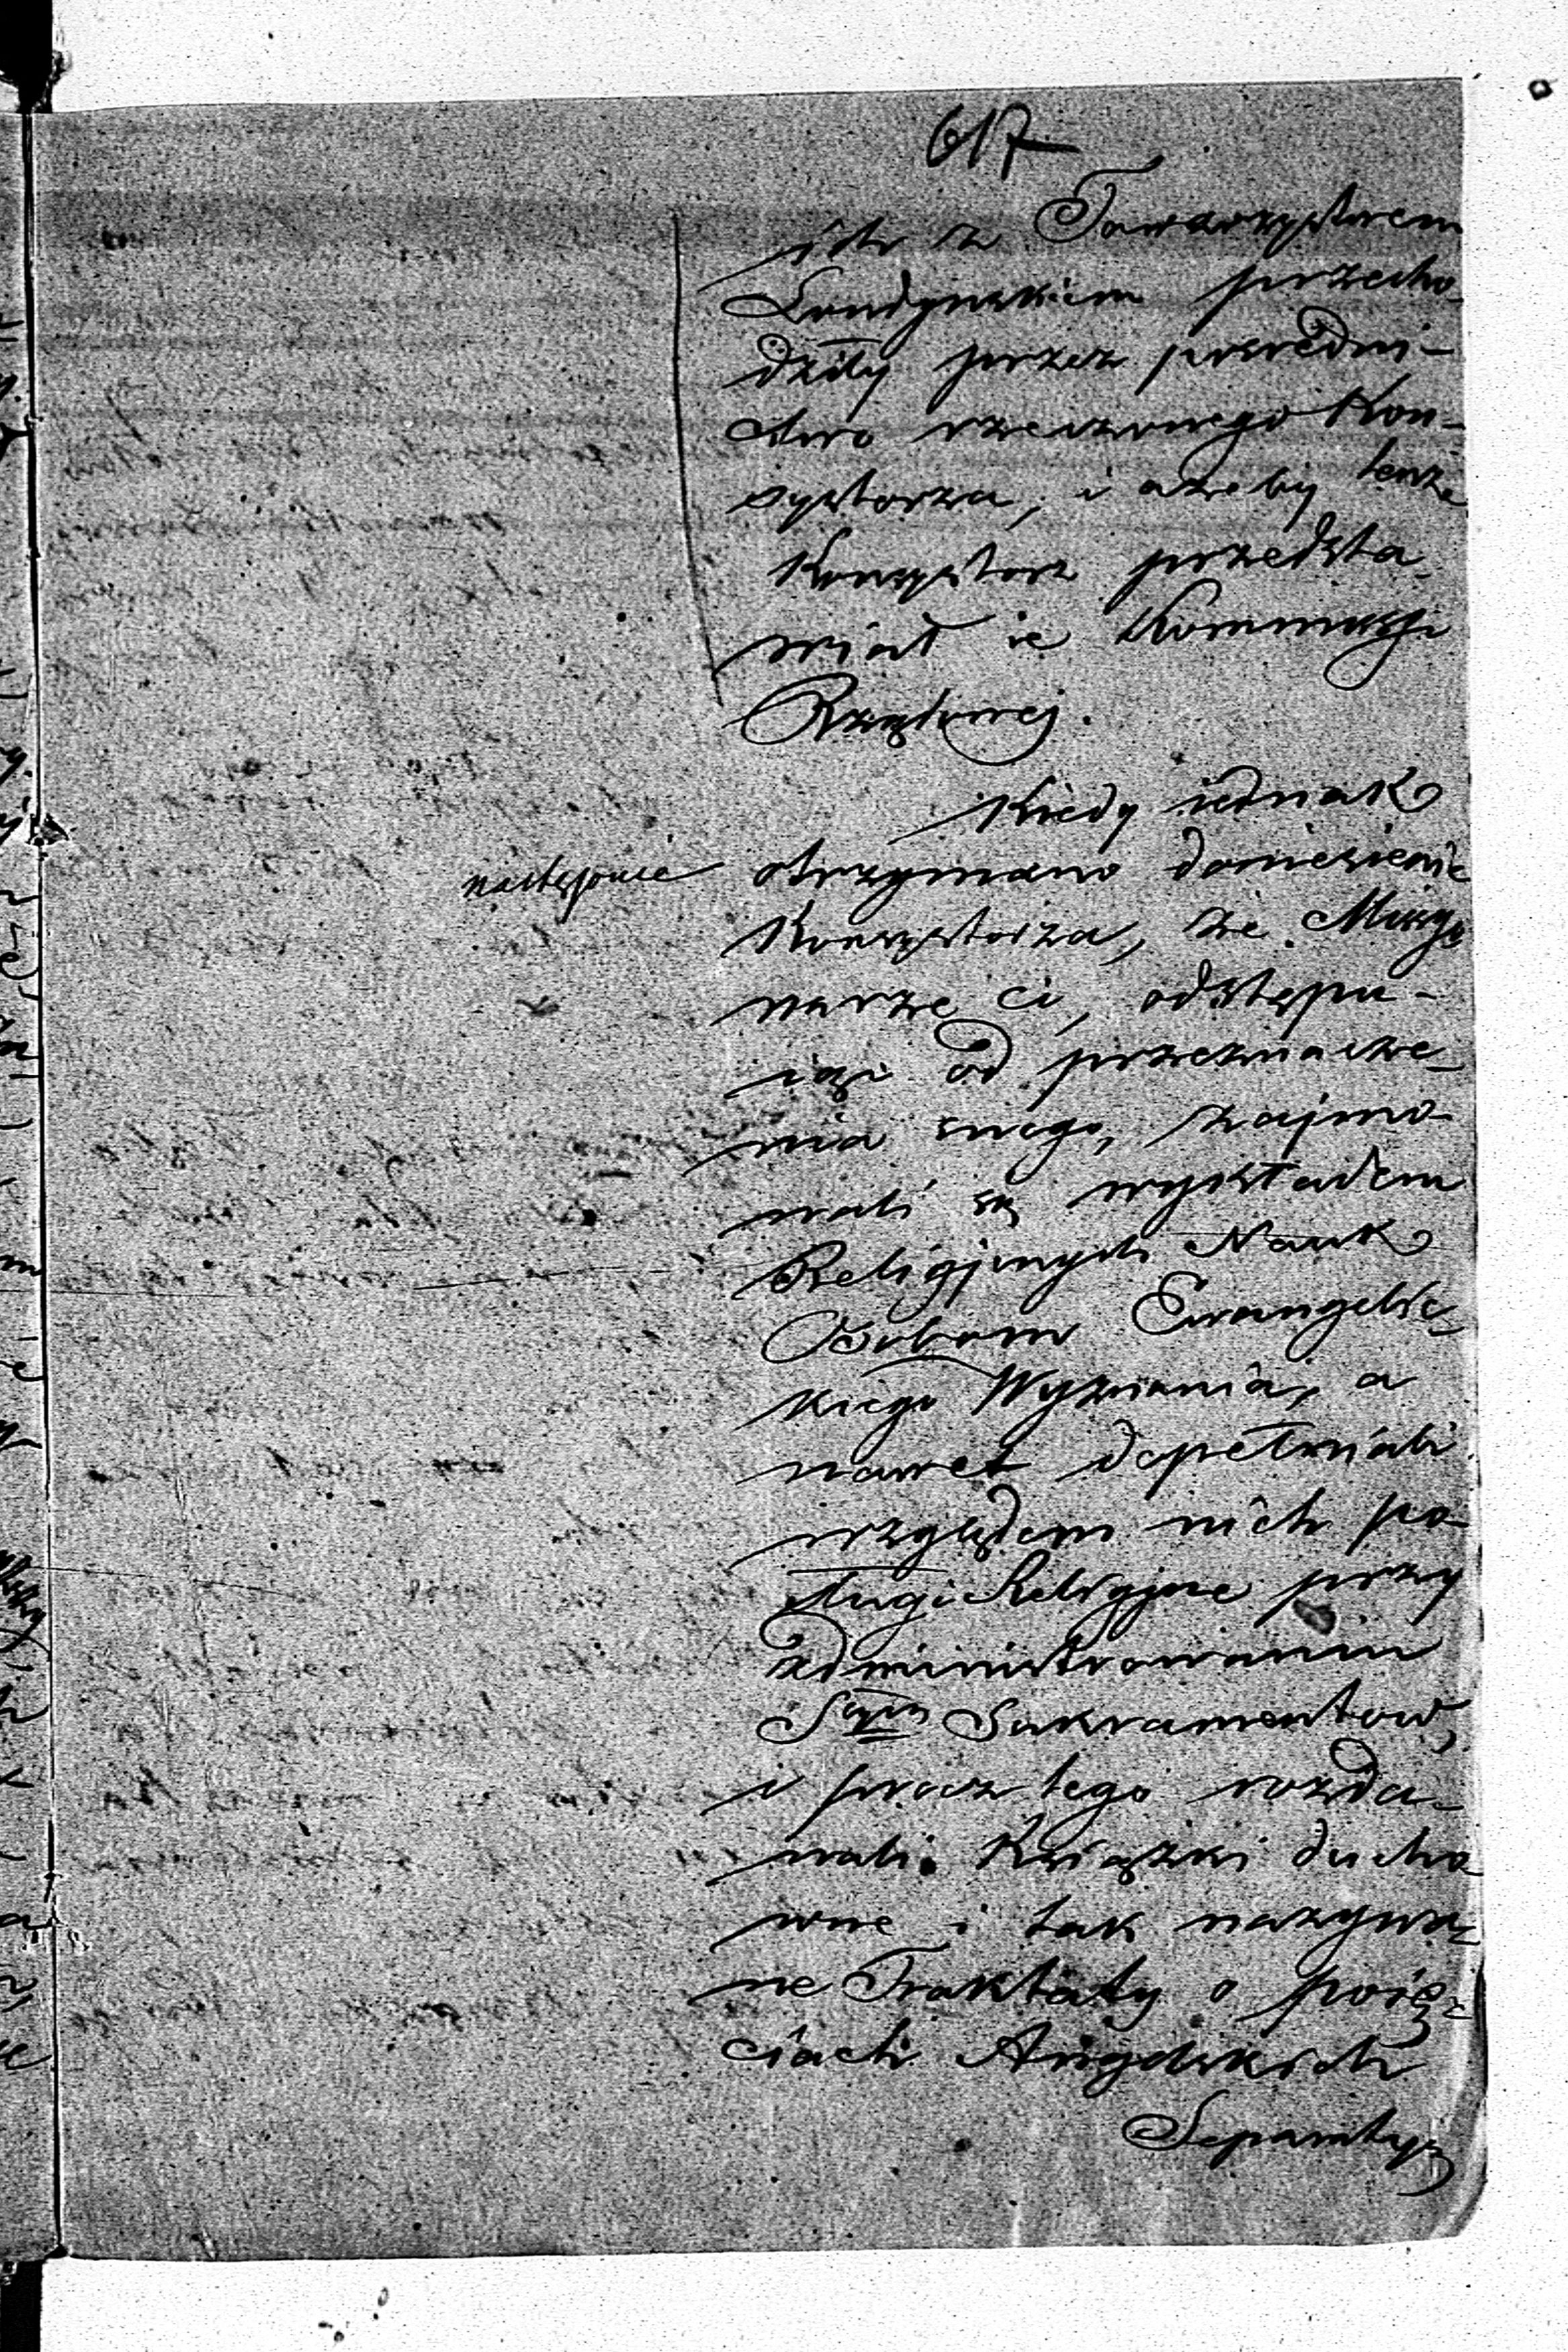 617
ich z Towarzystwem
Londyńskiem przecho-
dziły przez pośredni-
ctwo rzeczonego Kon-
systorza, i ażeby tenże
Konsystorz przedsta-
wiał je Kommissyi
Rządowej.
Kiedy iednak
następnie otrzymano doniesienie
Konsystorza, że Missyo
narze ci, odstępu-
iąc od przeznacze-
nia swego, zajmo-
wali się wykładem
Religijnych Nauk
Osobom Ewangelic-
kiego Wyznania, a
nawet dopełniali
względem nich po-
sługi Religijne przy
administrowaniu
Stych Sakramentów,
i prócz tego rozda-
wali Książki ducho
wne i tak nazywa-
ne Traktaty o poię-
ciach Angielskich
Separatys